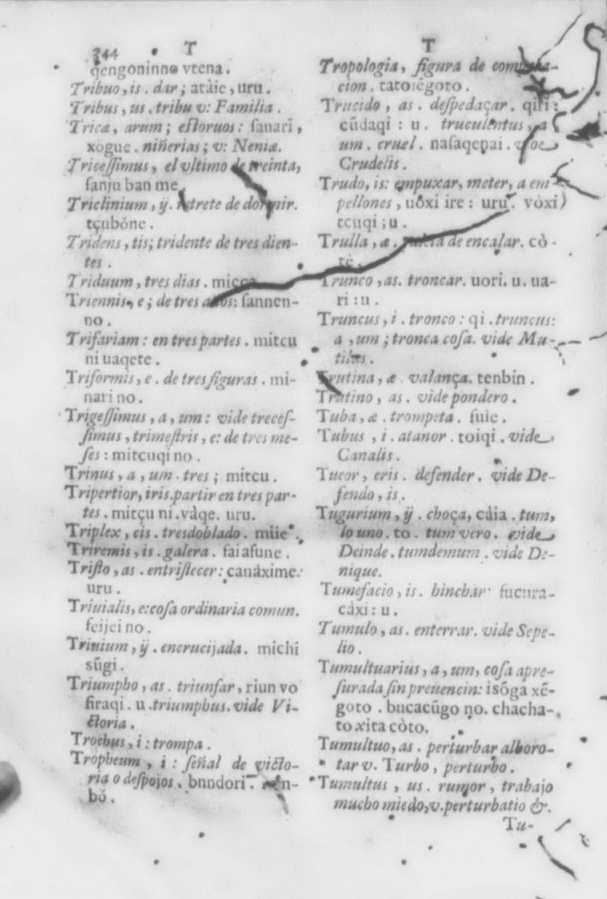 344 T
qengoninno vtena.
Tribuo, is. dar; atáie, uru.
Tribus, us. tribu v: Familia.
Tricæ, arum; estoruos: sauari,
xogue. niñerias; v: Neniæ.
Tricessimus, el vltimo de treinta,
sanju ban me.
Triclinium, ÿ. retrete de dormir.
tçubóne.
Tridens, tis; tridente de tres dien-
tes.
Triduum, tres dias. micca.
Triennis, e; de tres años: sannen-
no.
Trifariam: en tres partes. mitcu
ni uaqete.
Triformis, e. de tres figuras. mi-
nari no.
Trigessimus, a, um: vide treces-
simus, trimestris, e: de tres me-
ses: mitcuqi no.
Trinus, a, um. tres; mitcu.
Tripertior, iris. partir en tres par-
tes. mitçu ni vàqe. uru.
Triplex, cis. tresdoblado. miie.
Triremis, is. galera. saiafune.
Tristo, as. entristecer: canáxime.
uru.
Triuialis, e: cosa ordinaria comun.
feijei no.
Triuium, ÿ. encrucijada. michi
sũgi.
Triumpho, as. triunfar, riun vo
firaqi. u. triumphus. vide Vi-
ctoria.
Trochus, i: trompa.
Tropheum, i: señal de victo-
ria o despojos. bnndori.
bó.
T
Tropologia, figura de
cion. tatoiegoto.
Trucido, as. despedaçar. qiri:
cũdaqi: u. truculentus, a
um. cruel. nasaqenai.
Crudelis.
Trudo, is: empuxar, meter, a em
pellones, uoxi ire: uru. voxi)
tcuqi; u.
Trulla, æ. de encalar. cò-
te.
Trunco, as. troncar. uori. u. ua-
ri: u.
Truncus, i. tronco: qi. truncus:
a, um; tronca cosa. vide Mu-
tilus.
Trutina, æ. valança. tenbin.
Trutino, as. vide pondero.
Tuba, æ. trompeta. fuie.
Tubus, i. atanor. toiqi. vide
Canalis.
Tueor, eris. defender. vide De-
fendo, is.
Tugurium, ÿ. choça, cáia. tum,
lo uno. to. tum vero. vide
Deinde. tumdemum. vide De-
nique.
Tumefacio, is. hinchar fucura-
cáxi: u.
Tumulo, as. enterrar. vide Sepe-
lio.
Tumultuarius, a, um, cosa apre-
surada sin preuencin: isóga xé-
goto. bucacũgo no. chacha-
to xita còto.
Tumultuo, as. perturbar alboro-
tar v. Turbo, perturbo.
Tumultus, us. rumor, trabajo
mucho miedo, v. perturbatio &.
Tu-